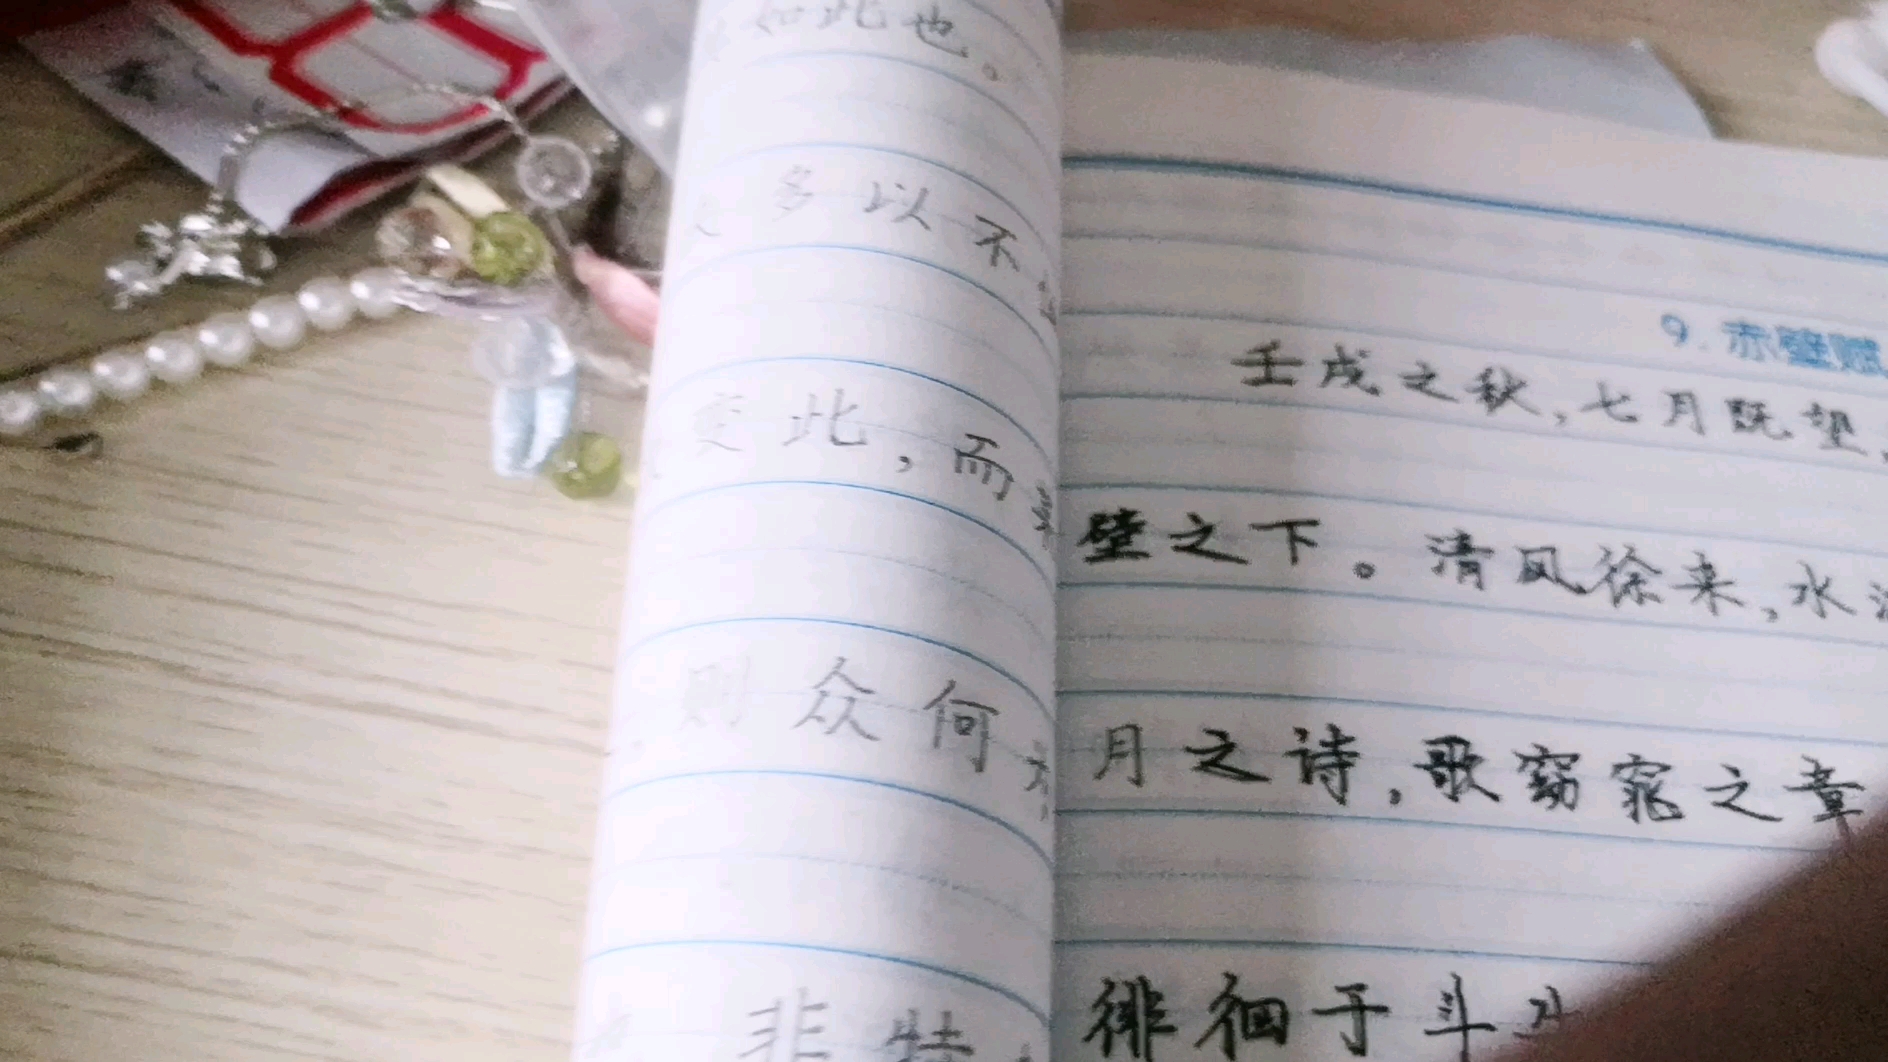 如此也。
多以不
变此，而
则众何
非特
9. 赤壁赋
壬戌之秋，七月既望，
壁之下。清风徐来，水
月之诗，歌窈窕之章
徘徊于斗